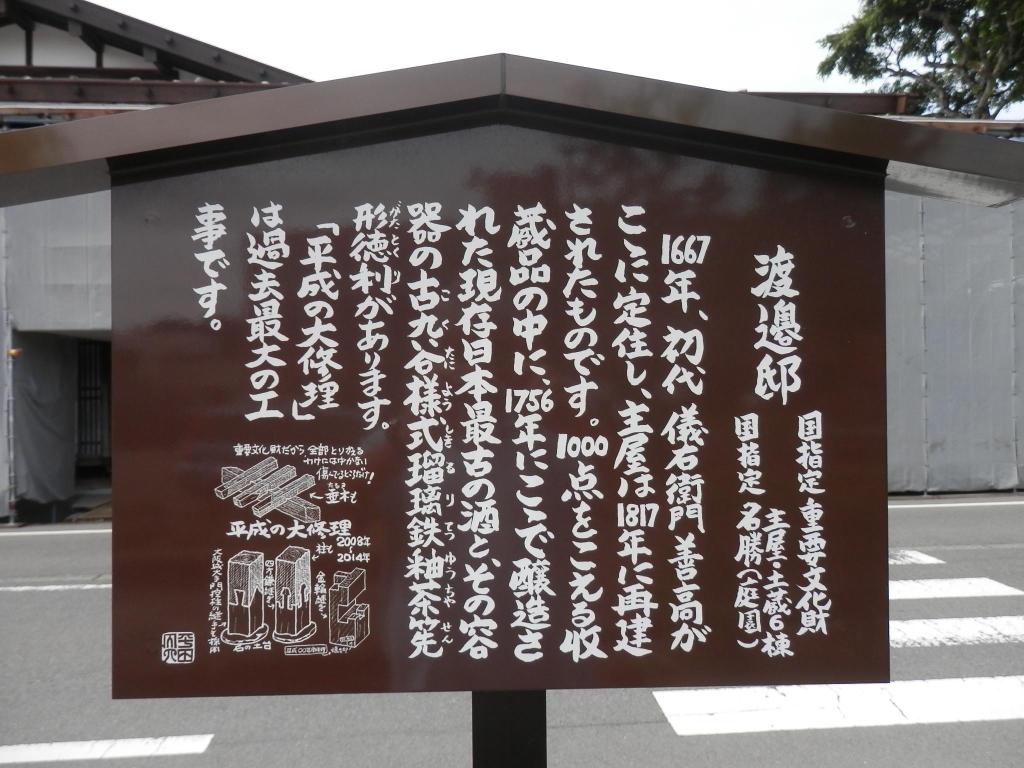 渡邉邸
国指定 重要文化財
主屋・土蔵6棟
国指定 名勝(庭園)
1667年、初代 儀右衛門 善高が
ここに定住し、主屋は1817年に再建
されたものです。1000点をこえる収
蔵品の中に、1756年にここで醸造さ
れた現存日本最古の酒と、その容
器の古九谷様式瑠璃鉄釉茶筅
こくたにようしきるりてつゆうちゃせん
形徳利があります。
がたとくり
「平成の大修理」
は過去最大の工
事です。
重要文化財だから、全部とりかえる
わけにはゆかない
傷んでるとこだけ!
←垂木も
平成の大修理
2008年
2014年
柱も
四方鎌継ぎも
金輪継ぎも
石の土台